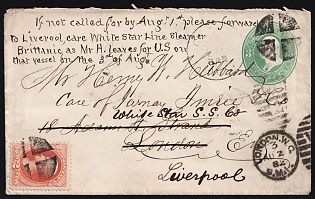 If not called for by Aug. 1st please forward
to Liverpool, care White Star Line Steamer
Brittanic, as Mr H. leaves for U.S. on
that vessel on the 3rd of Aug.
Mr. Henry H. Hibbard
Care of
White Star S.S. Co
London
Liverpool
LONDON W.C.
82